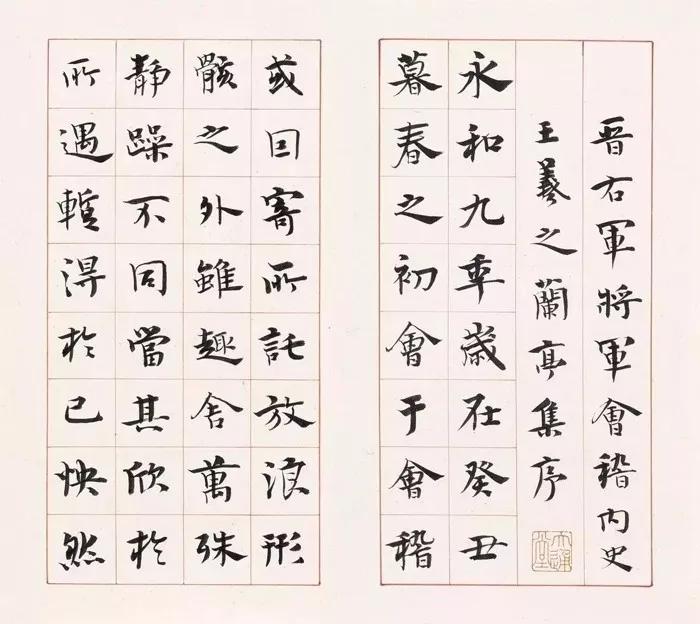 晉右軍將軍會稽内史
王羲之蘭亭集序
永和九年歲在癸丑
暮春之初會于會稽
或因寄所託放浪形
骸之外雖趣舍萬殊
靜躁不同當其欣於
所遇暫得於己怏然